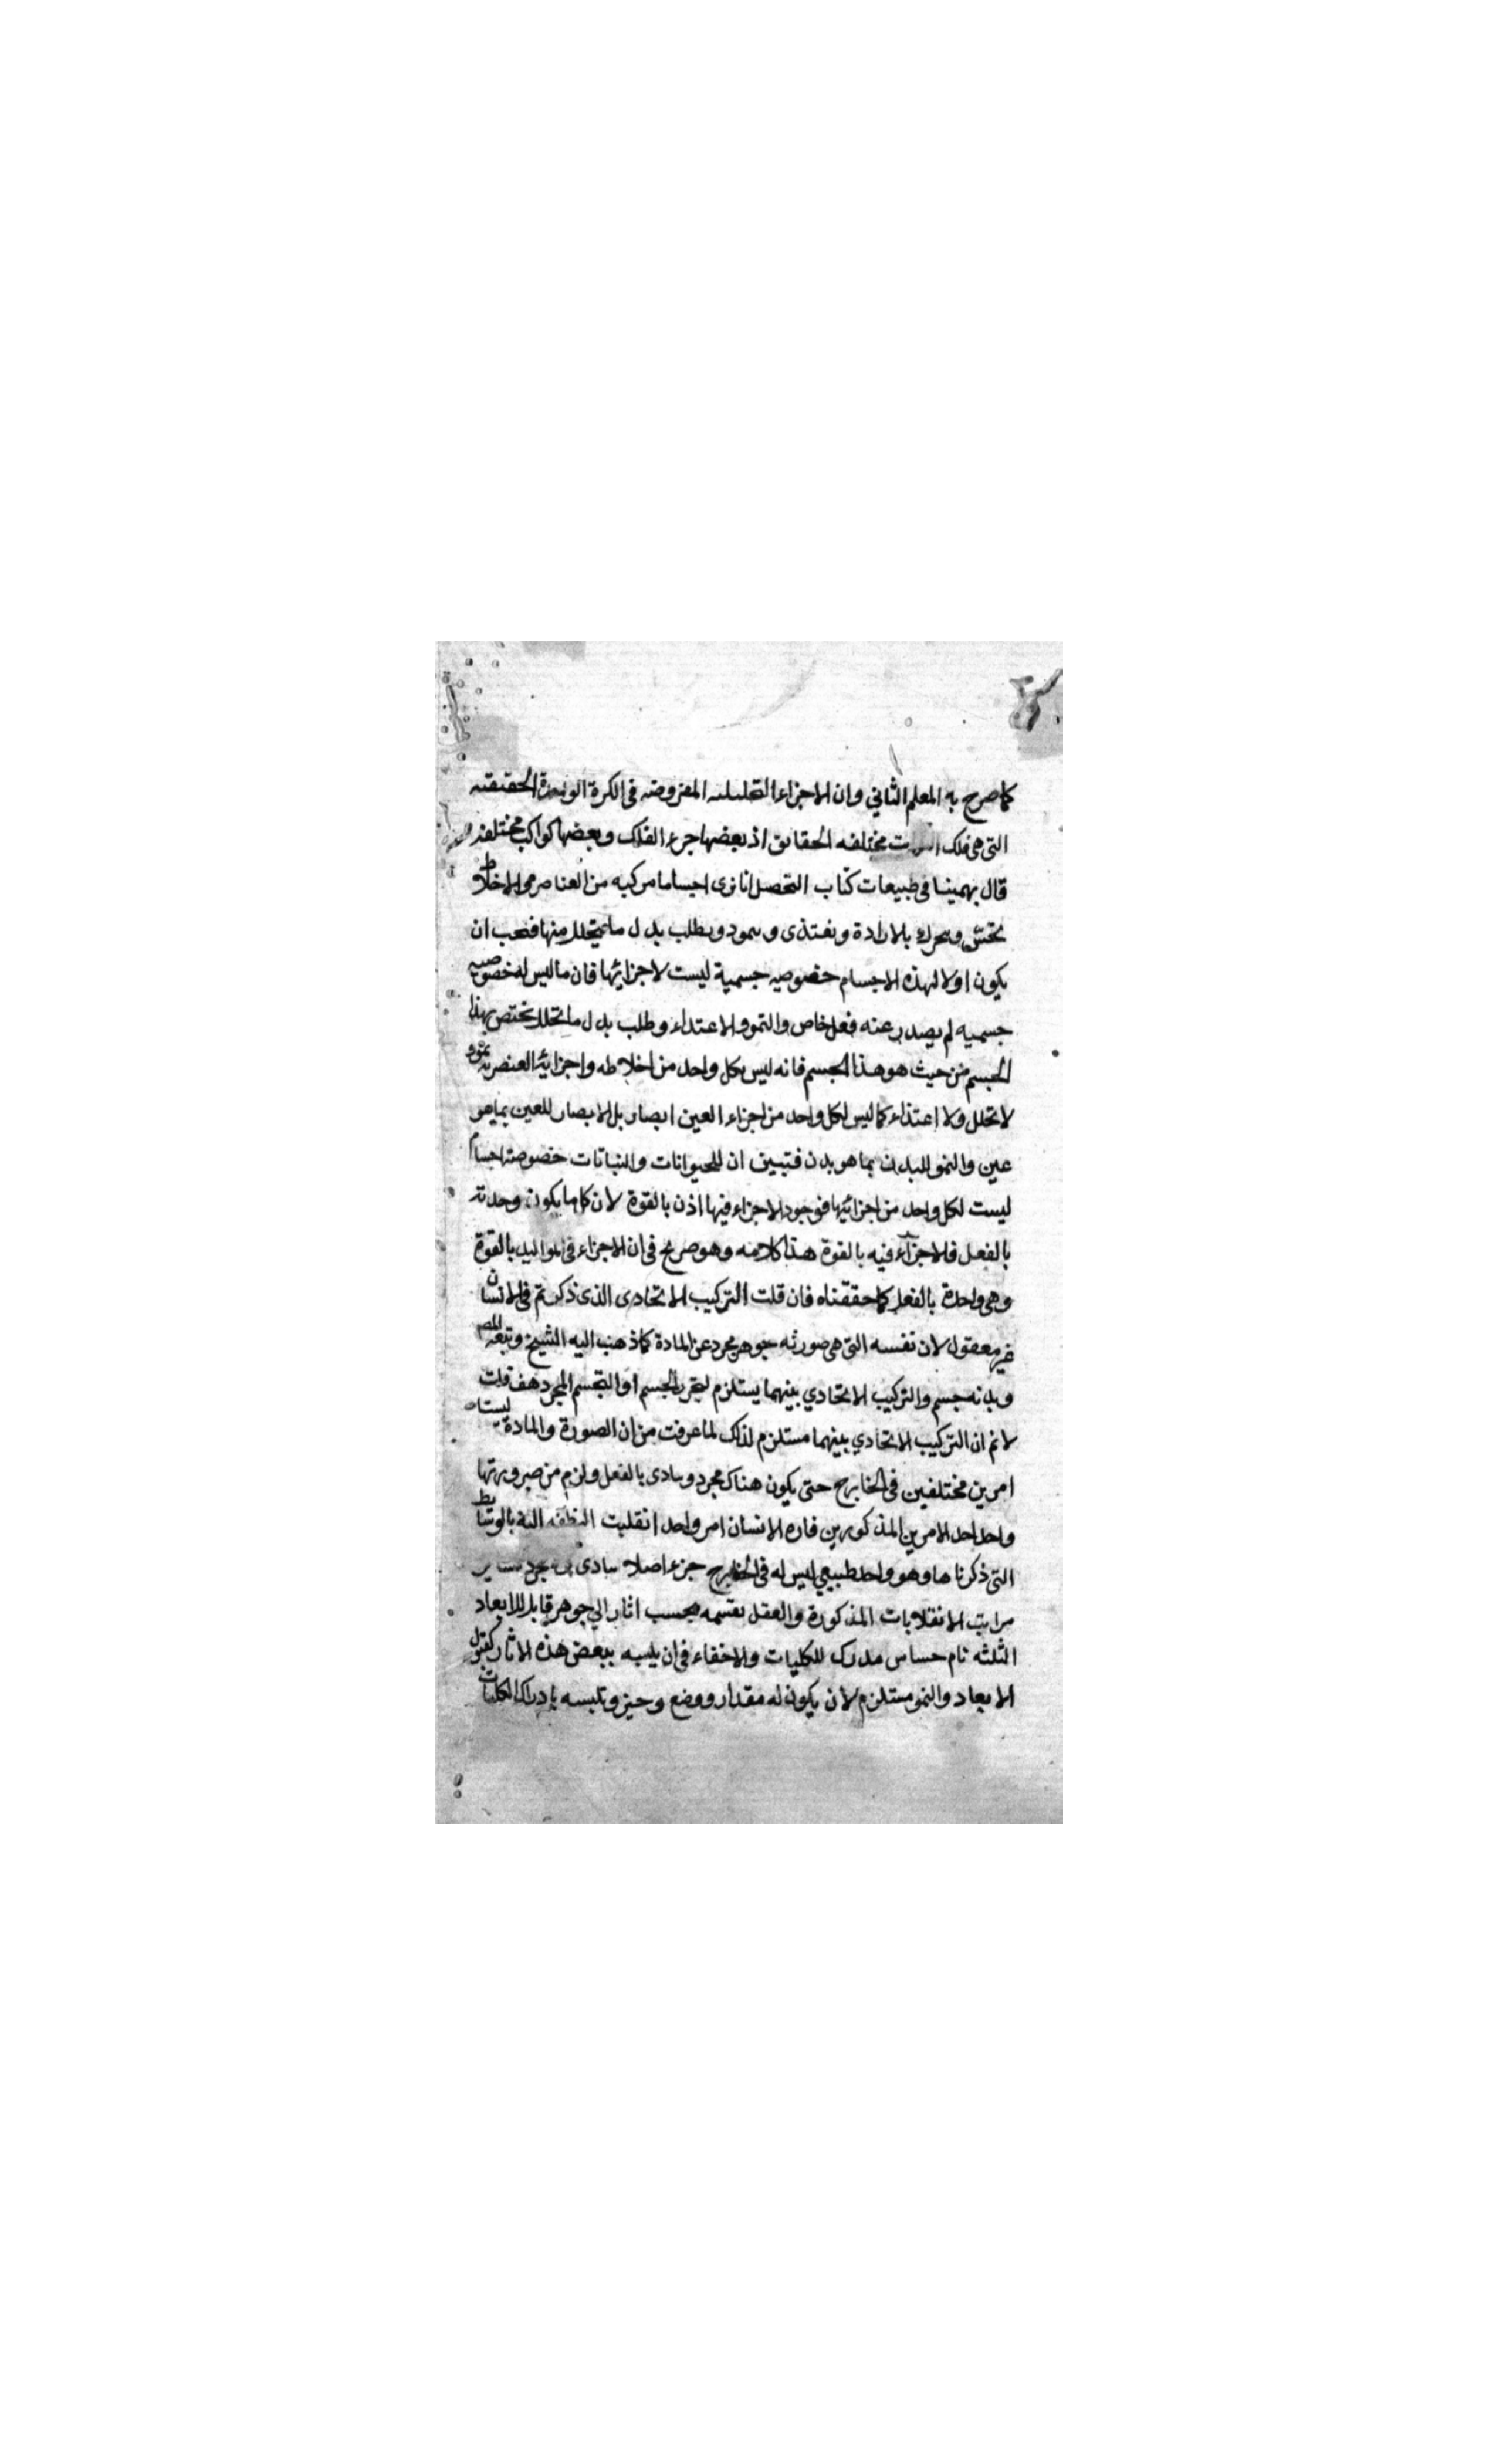 كما صرح به المعلم الثاني وان الاجزاء التحليليه المفروضه فى الكرة الواحدة الحقيقيه
التى هى فلك مختلفه الحقايق اذ بعضها جرء الفلك وبعضها كواكب مختلفه
قال بهمنيا فى طبيعات كتاب التحصيل انا نرى اجساما مركبه من العناصر والاخلاط
تحسّ وتتحرك بالارادة وتغتذى وتنمو وتطلب بدل ما يتحلل منها فيجب ان
يكون اولا لهذه الاجسام خصوصيه جسمية ليست لاجزائها فان ما ليس له خصوصيه
جسميه لم يصدر عنه فعل خاص والنمو والاعتداء وطلب بدل ما تحلل يختص بهذا
الجسم من حيث هو هذا الجسم فانه ليس بكل واحد من اخلاطه واجزائه العنصريه نمو و
لا تحلل ولا اعتذاء كما ليس لكل واحد من اجزاء العين ابصار بل الابصار للعين بما هو
عين والنمو للبدن بما هو بدن فتبين ان للحيوانات والنباتات خصوصيته اجسام
ليست لكل واحد من اجزائها فوجود الاجزاء فيها اذن بالقوة لان كلما يكون وحدته
بالفعل فالاجزاء فيه بالقوة هذا كلامه وهو صريح فى ان الاجزاء فى المواليد بالقوة
وهى واحدة بالفعل كما حققناه فان قلت التركيب الاتحادى الذى ذكرتم فى الانسان
غير معقول لان نفسه التى هى صورته جوهر مجرد عن المادة كما ذهب اليه الشيخ وتبعه المص
وبدنه جسم والتركيب الاتحادي بينهما يستلزم تجرد الجسم او التجسم المجرد هف قلت
لا نم ان التركيب الاتحادي بينهما مستلزم لذلك لما عرفت من ان الصورة والمادة ليستا
امرين مختلفين فى الخارج حتى يكون هناك مجرد ومادى بالفعل ولزم من صيرورتها
واحدا احد الامرين المذكورين فان الانسان امر واحد انقلبت النطفه اليه بالوسائط
التى ذكرناها وهو واحد طبيعي ليس له فى الخارج جزء اصلا مادى
مراتب الانقلابات المذكورة والعقل يقسمه بحسب اثار الي جوهر قابل للابعاد
الثلثه نام حساس مدرك للكليات ولا خفاء فى ان تلبسه ببعض هذه الاثار كقبول
الابعاد والنمو مستلزم لان يكون له مقدار ووضع وحيز وتلبسه بادراك الكليات